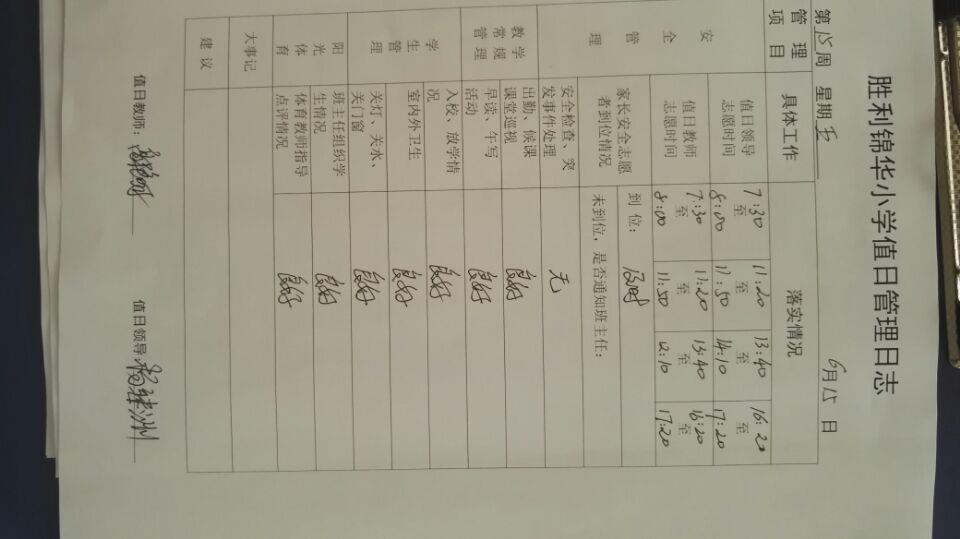 胜利锦华小学值日管理日志
第15周 星期五 6月15日
管理项目 具体工作 落实情况
安全管理
值日领导志愿时间 7:30至8:00 11:20至11:50 13:40至14:10 16:20至17:20
值日教师志愿时间 7:30至8:00 11:20至11:50 13:40至12:10 16:20至17:20
家长安全志愿者到位情况 到位:及时
未到位,是否通知班主任:
安全检查、突发事件处理 无
教学常规管理
出勤、候课课堂巡视 良好
早读、午写活动 良好
学生管理
入校、放学情况 良好
室内外卫生 良好
关灯、关水、关门窗 良好
阳光体育
班主任组织学生情况 良好
体育教师指导点评情况 良好
大事记
建议
值日教师: 值日领导: